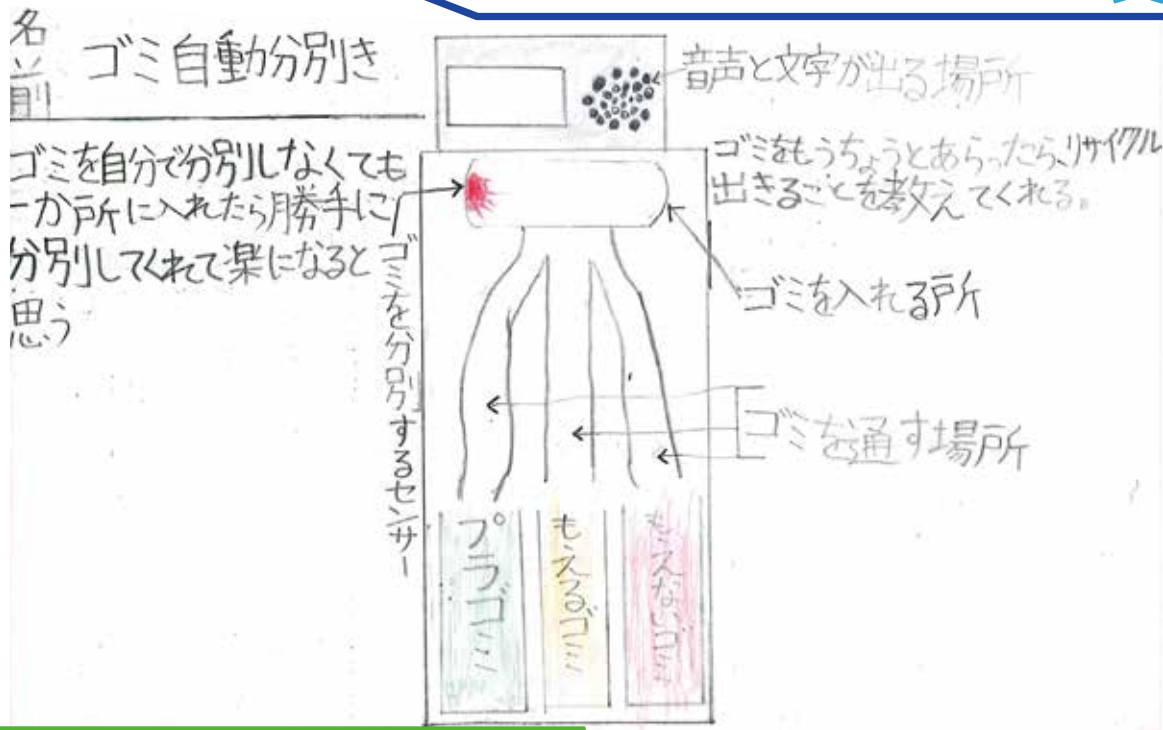 名前
ゴミ自動分別き
ゴミを自分で分別しなくても
一か戸所に入れたら勝手に
分別してくれて楽になると
思う
ゴミを分別するセンサー
音声と文字が出る場所
ゴミをもうちょうとあらったら、リサイクル
出きることを教えてくれる。
ゴミを入れる戸所
ゴミを通す場所
プラゴミ
もえるゴミ
もえないゴミ